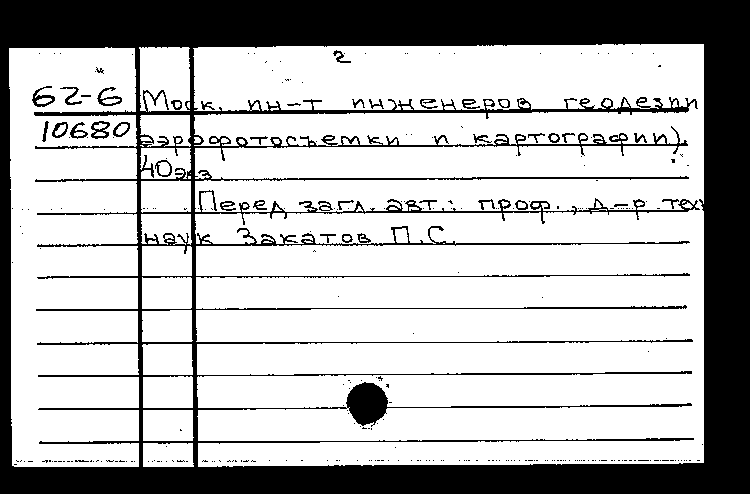 2
62-6 Моск. ин-т инженеров геодезии
10680 аэрофотосъемки и картографии).
40экз.
Перед загл. авт.: проф., д-р тех
наук Закатов П.С.